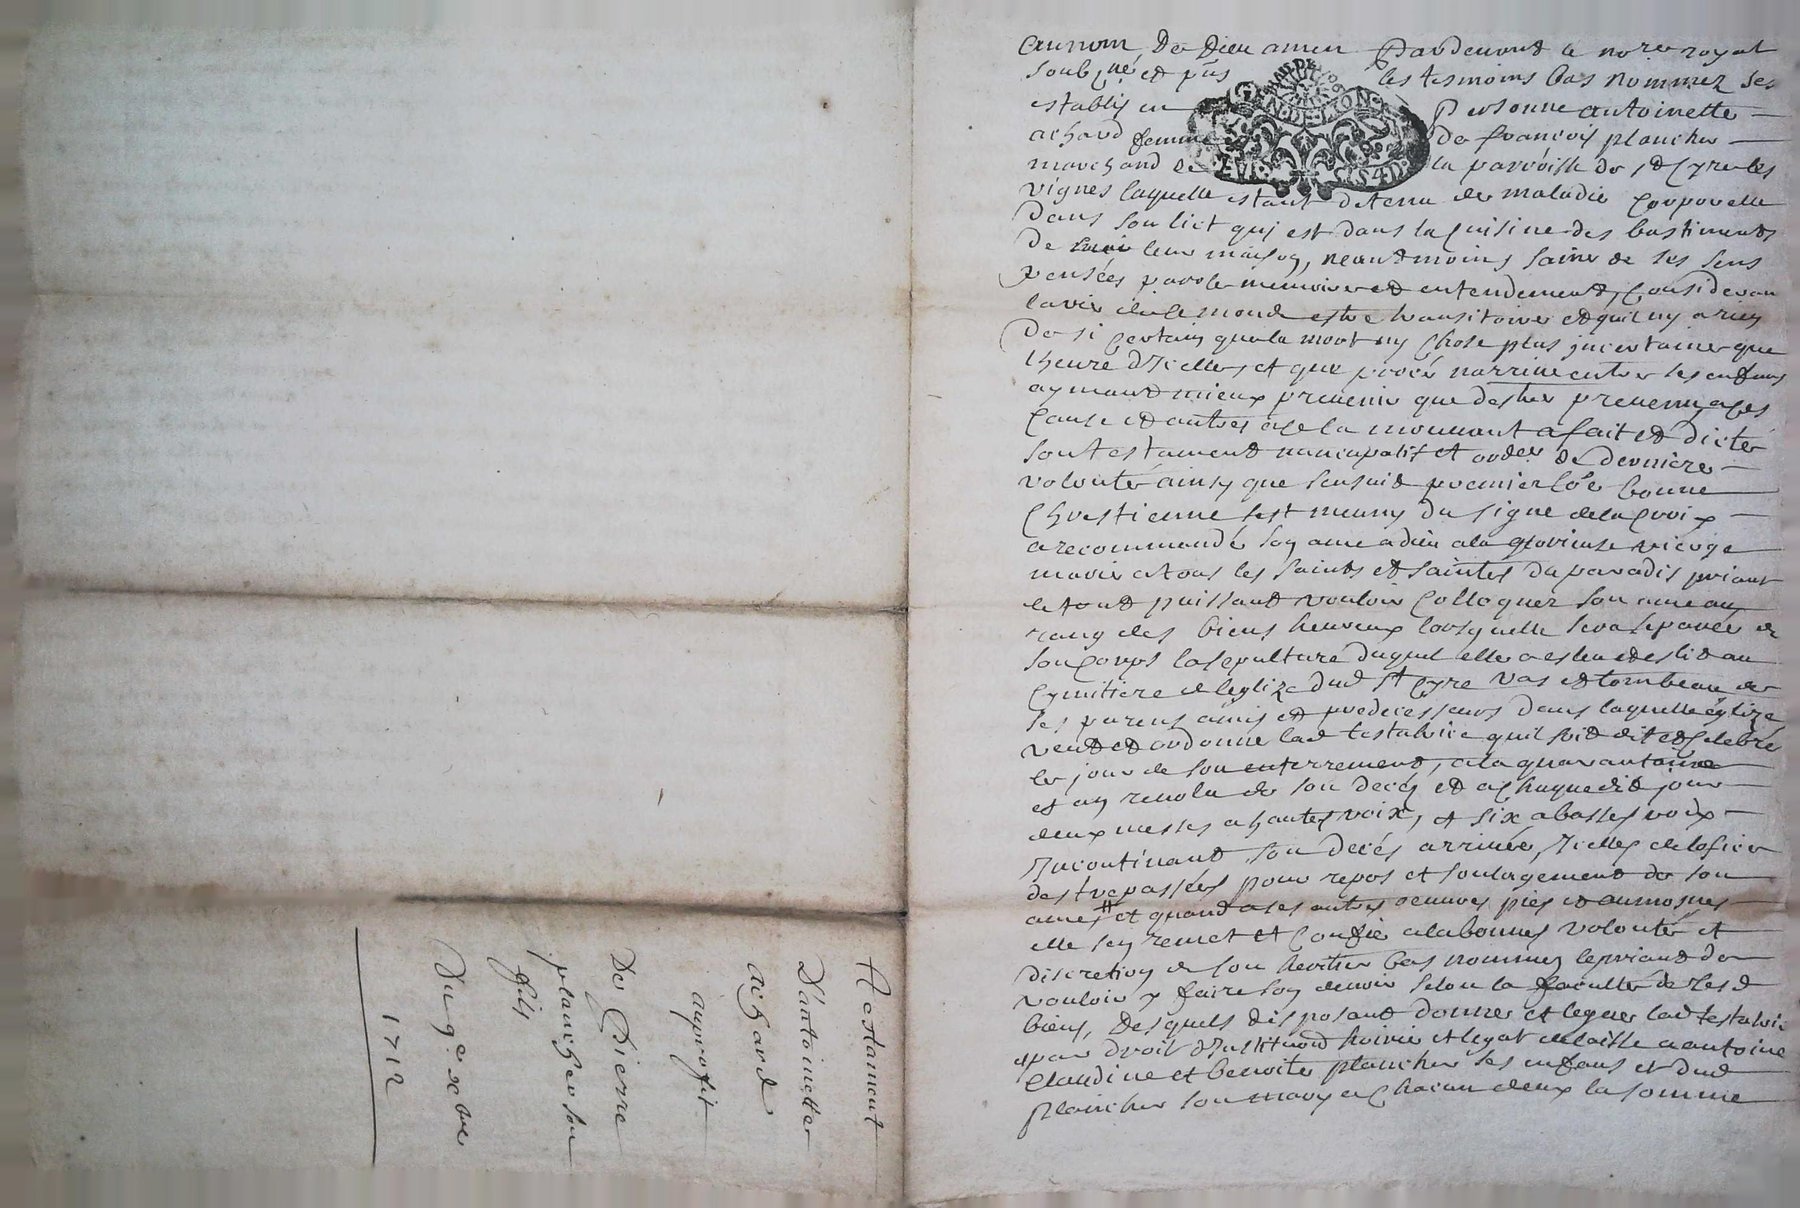 Au nom de Dieu amen Pardevant le no.re royal
soubsigné et p̃ns les tesmoins bas nommez ses
establis en Personne antoinette
achard femme de françois plancher
marchand de la parroisse de st Cyre les
vignes laquelle estant detenue de maladie corporelle
dans son lict quj est dans la cuisine des bastiments
de leur maison, neantmoins saine de ses sens
pensées parole memoire et entendement, considerant
la vie de ce monde estre transitoire et quil ny a rien
de si certain que la mort ny chose plus jncertaine que
lheure djcelle, et que procés narrive entre les enfans
aymant mieux prevenir que destre prevenue, a ces
cause et autres a ce la mouvant a fait et dicté
son testament nuncupatif et order de derniere
volonté ainsy que sensuit premier co͠e bonne
Chrestienne sest muny du signe de la croix
a recommandé son ame a dieu a la glorieuse vierge
marie a tous les saints et saintes du paradis priant
le tout puissant vouloir colloquer son ame au
rang des biens heureux lorsquelle sera separée de
son corps la sepulture duquel elle a esleu et eslit au
cymitiere de leglize dud st Cyre vas et tombeau de
ses parens amis et predecesseurs dans laquelle églize
veut et ordonne lad testatrice quil soit dit et celebré
le jour de son enterrement, a la quarantaine
et an revolu de son decés et a chaque dit jour
deux messes a hautes voix, et six a basses voix
Jncontinant son decés arrivée, Jcelles de lofice
des trepassées pour repos et soulagement de son
ames # et quand a ses autres oeuvres pies et aumosnes
elle sen remet et confie a la bonnes volonté et
discretion de son heritier bas nommez le priant de
vouloir y faire son devoir selon la faculté de sesd
biens, desquels disposant donne et legue lad testatrice
par droit djnstitu͠on hoirie et legat delaisse a antoine
Claudine et benoite plancher ses enfans et dud
plancher son mary a chacun deux la somme
GEN·DE·LYON
Testament
D'antoinette
achard
auprofit
De Pierre
plancher son
fils
Du 9e xbre
1712